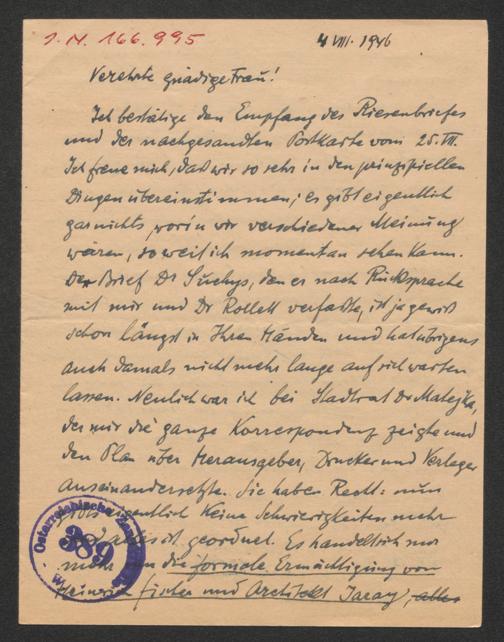 I.N. 166.995
4 VIII. 1946
Verehrte gnädige Frau!
Ich bestätige den Empfang des Riesenbriefes
und der nachgesandten Postkarte vom 25. VII.
Ich freue mich, daß wir so sehr in den prinzipiellen
Dingen übereinstimmen; es gibt eigentlich
garnichts, worin wir verschiedener Meinung
wären, soweit ich momentan sehen kann.
Der Brief Dr Suchys, den er nach Rücksprache
mit mir und Dr Rollett verfaßte, ist ja gewiß
schon längst in Ihren Händen und hat übrigens
auch damals nicht mehr lange auf sich warten
lassen. Neulich war ich bei Stadtrat Dr Matejka,
der mir die ganze Korrespondenz zeigte und
den Plan über Herausgeber, Drucker und Verleger
auseinandersetzte. Sie haben Recht: nun
gibt's eigentlich keine Schwierigkeiten mehr
alles ist geordnet. Es handelt sich nur
mehr um die formale Ermächtigung von
Heinrich Fischer und Architekt Jaray, alles
Österreichische Zensurstelle
389
W